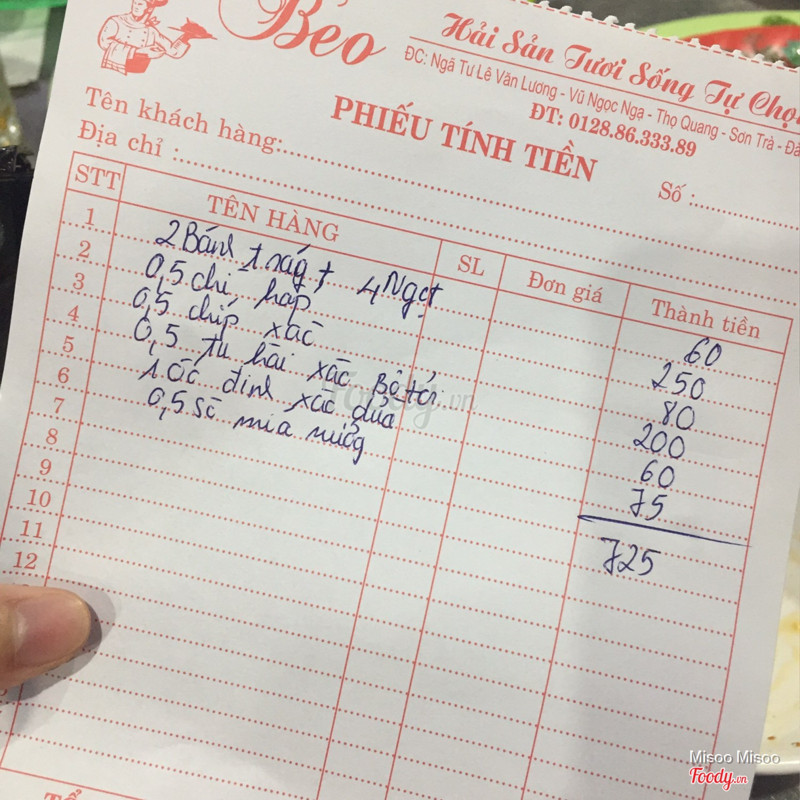 Bẻo
Hải Sản Tươi Sống Tự Chọn
ĐC: Ngã Tư Lê Văn Lương - Vũ Ngọc Nhạ - Thọ Quang - Sơn Trà - Đà
ĐT: 0128.86.333.89
PHIẾU TÍNH TIỀN
Số :
Tên khách hàng:
Địa chỉ :
STT TÊN HÀNG SL Đơn giá Thành tiền
1 2 Bánh tráng + 4 Ngọt 60
2 0,5 chì hấp 250
3 0,5 chíp xào 80
4 0,5 tu hài xào Bơ tỏi 200
5 1 ốc đinh xào dừa 60
6 0,5 Sò mía nướng 75
7 725
8
9
10
11
12
TỔ
Foody.vn
Misoo Misoo
Foody.vn